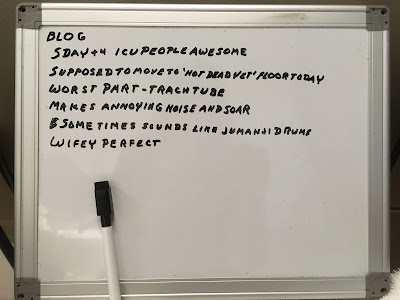 BLOG
5 DAY +4 ICU PEOPLE AWESOME
SUPPOSED TO MOVE TO 'NOT DEAD YET' FLOOR TODAY
WORST PART - TRACH TUBE
MAKES ANNOYING NOISE AND SOAR
& SOMETIMES SOUNDS LIKE JUMANJI DRUMS
WIFEY PERFECT